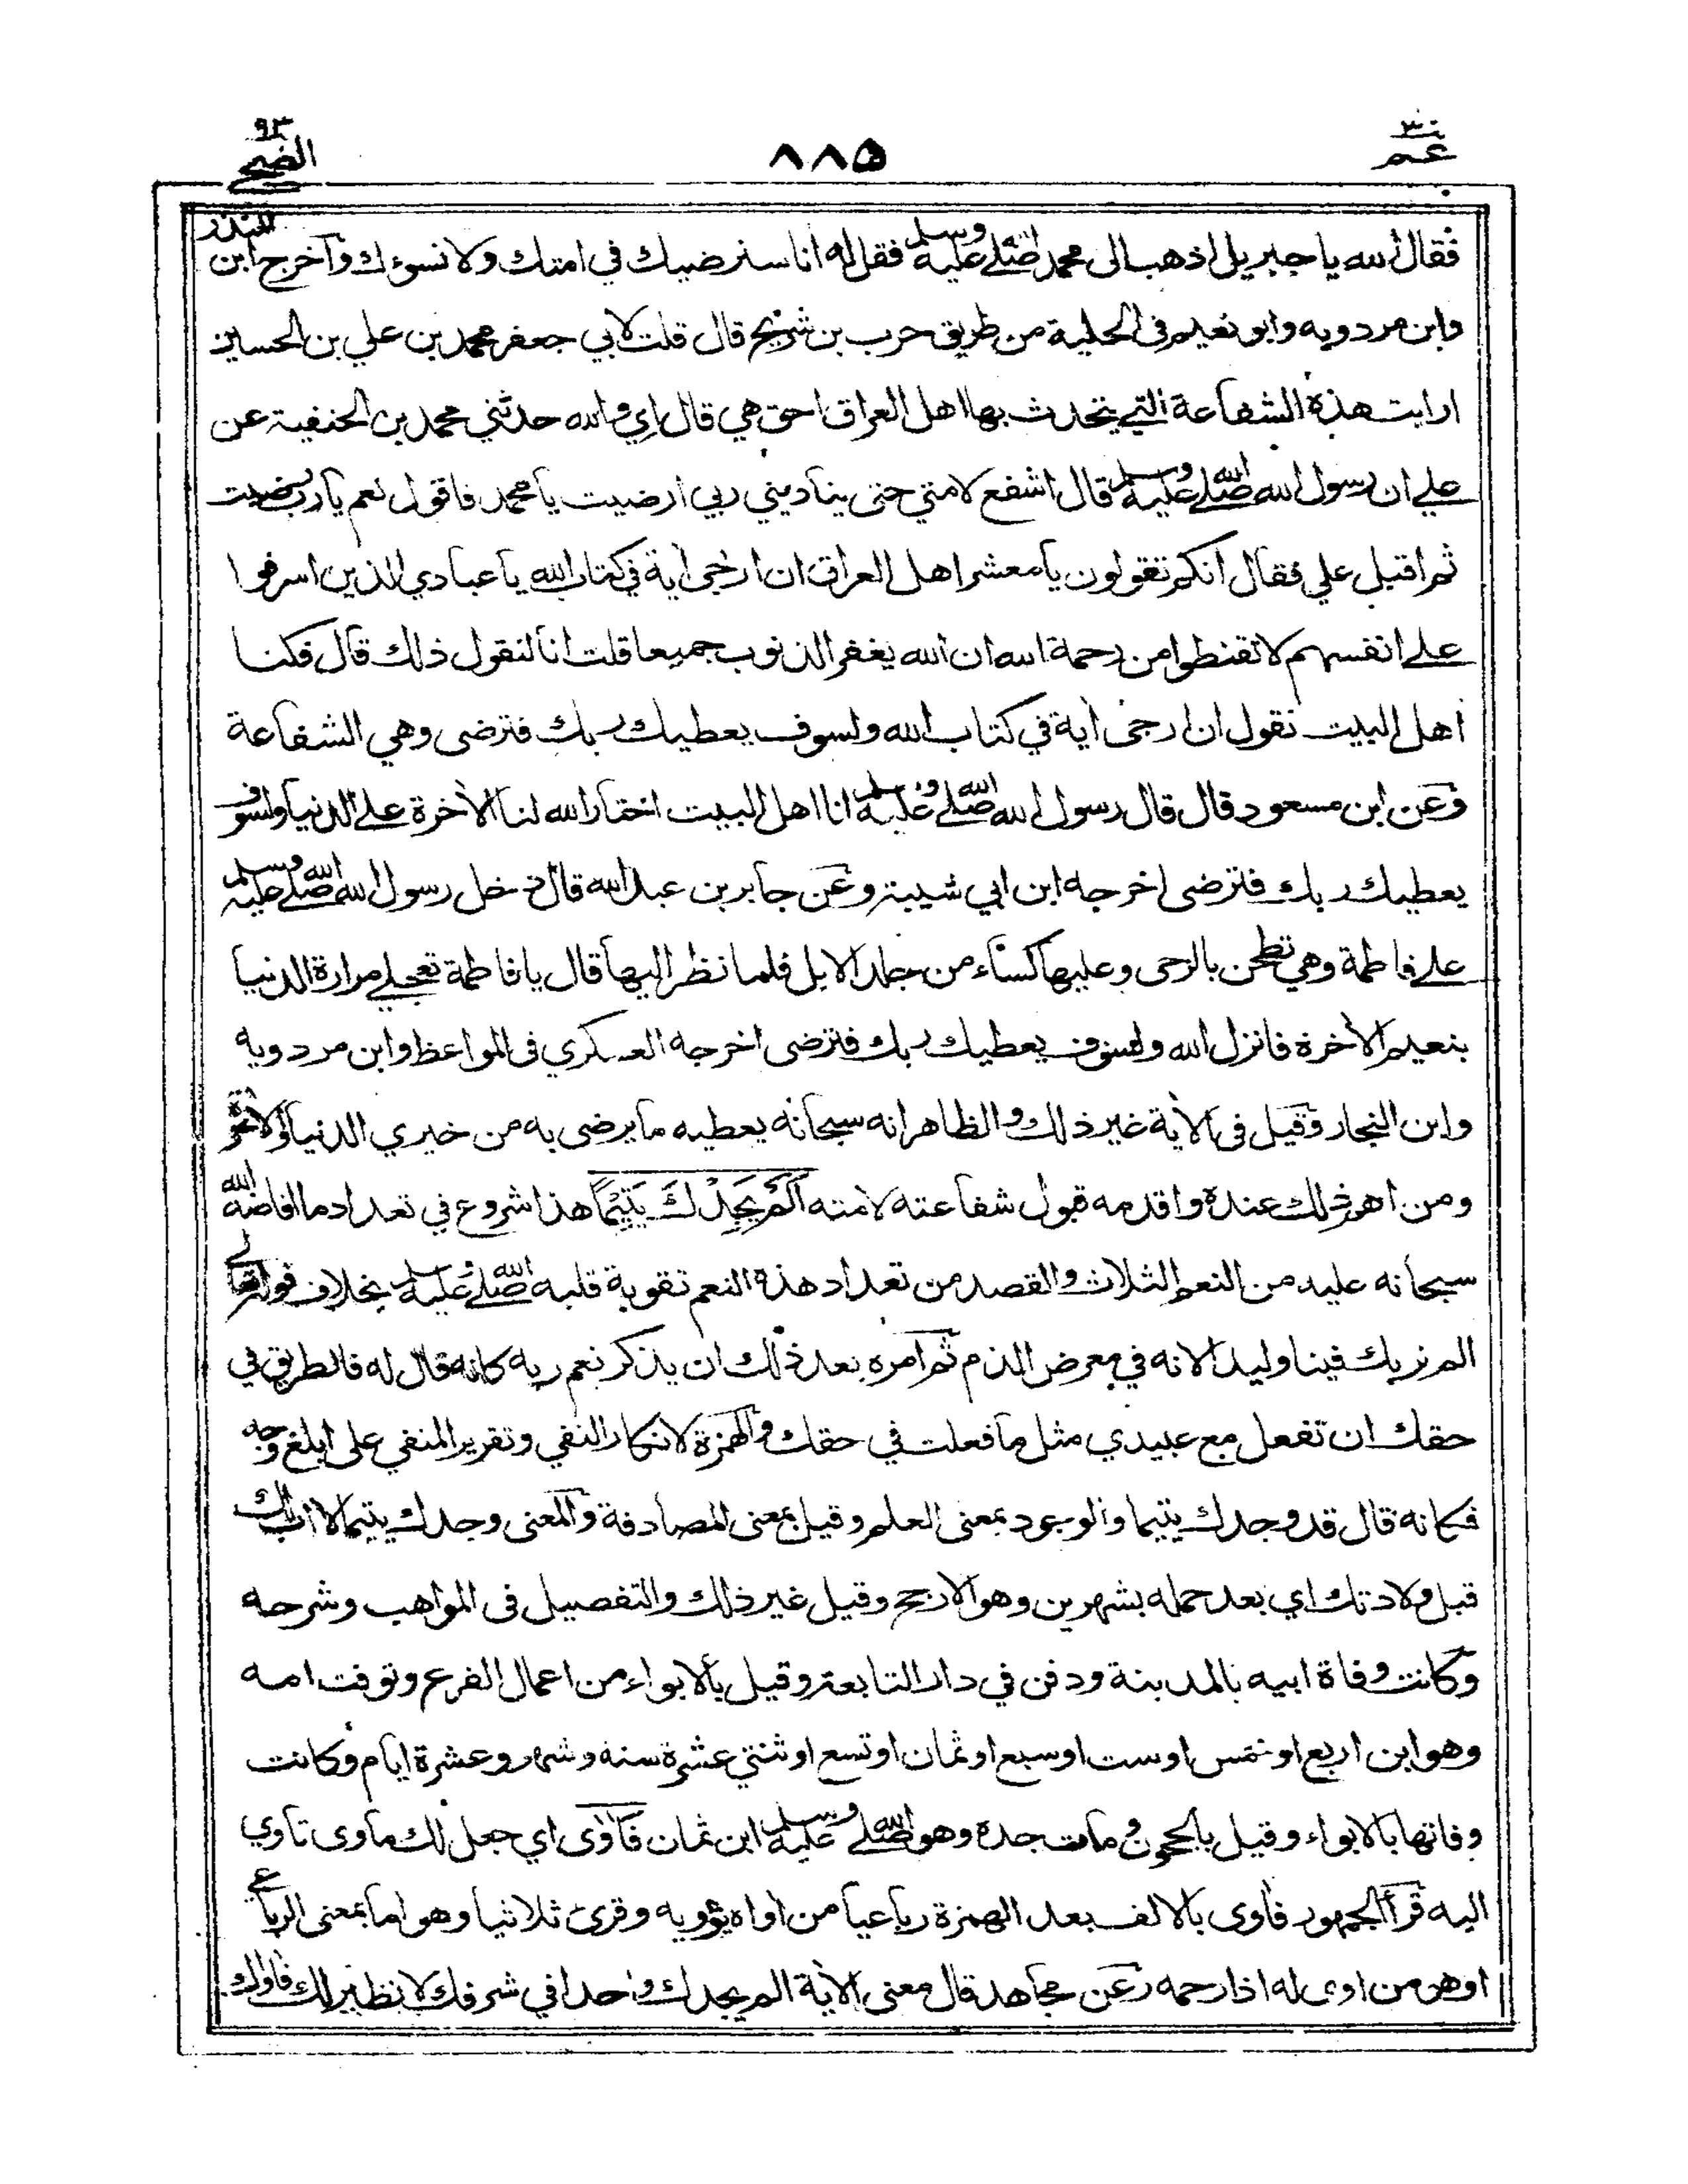 عم ٣٠
٨٨٥
٩٣ الضحى
فقال الله يا جبريل اذهب الى محمد صلى الله عليه وسلم فقل له انا سنرضيك في امتك ولا نسوءك وآخرج ابن المنذر
وابن مردويه وابو نعيم فى الحلية من طريق حرب بن شريح قال قلت لابي جعفر محمد بن علي بن الحسين
ارايت هذه الشفاعة التي يتحدث بها اهل العراق احق هي قال اي والله حدثني محمد بن الحنفية عن
علي ان رسول الله صلى الله عليه وسلم قال اشفع لامتي حتى يناديني ربي ارضيت يا محمد فاقول نعم يا رب رضيت
ثم اقبل علي فقال انكم تقولون يا معشر اهل العراق ان ارجى اية في كتاب الله يا عبادي الذين اسرفوا
على انفسهم لا تقنطوا من رحمة الله ان الله يغفر الذنوب جميعا قلت انا لنقول ذلك قال فكلنا
اهل البيت نقول ان ارجى اية في كتاب الله ولسوف يعطيك ربك فترضى وهي الشفاعة
وعن ابن مسعود قال قال رسول الله صلى الله عليه وسلم انا اهل البيت اختار الله لنا الآخرة على الدنيا ولسوف
يعطيك ربك فترضى اخرجه ابن ابي شيبة وعن جابر بن عبد الله قال دخل رسول الله صلى الله عليه وسلم
على فاطمة وهي تطحن بالرحى وعليها كساء من جلد الابل فلما نظر اليها قال يا فاطمة تعجلي مرارة الدنيا
بنعيم الآخرة فانزل الله ولسوف يعطيك ربك فترضى اخرجه العسكري فى المواعظ وابن مردويه
وابن النجار وقيل فى الآية غير ذلك والظاهر انه سبحانه يعطيه ما يرضى به من خيري الدنيا والآخرة
ومن اهم ذلك عنده واقدمه قبول شفاعته لامته اَلَمْ يَجِدْكَ يَتِيْمًا هذا شروع في تعداد ما افاضه الله
سبحانه عليه من النعم الثلاث والقصد من تعداد هذه النعم تقوية قلبه صلى الله عليه وسلم بخلاف قوله تعالى
الم نربك فينا وليدا لانه في معرض الذم ثم امره بعد ذلك ان يذكر نعم ربه كانه قال له فالطريق في
حقك ان تفعل مع عبيدي مثل ما فعلت في حقك والهمزة لانكار النفي وتقرير المنفي على ابلغ وجه
فكانه قال قد وجدك يتيما والوجود بمعنى العلم وقيل بمعنى المصادفة والمعنى وجدك يتيما لا اب لك
قبل ولادتك اي بعد حمله بشهرين وهو الارجح وقيل غير ذلك والتفصيل فى المواهب وشرحه
وكانت وفاة ابيه بالمدينة ودفن في دار التابعة وقيل بالابواء من اعمال الفرع وتوفت امه
وهو ابن اربع او خمس او ست او سبع او ثمان او تسع او ثنتي عشرة سنه وشهر وعشرة ايام وكانت
وفاتها بالابواء وقيل بالحجون ومات جده وهو صلى الله عليه وسلم ابن ثمان فَاٰوٰى اي جعل لك ماوى تاوي
اليه قرأ الجمهور فاٰوى بالالف بعد الهمزة رباعيا من اواه يؤويه وقرئ ثلاثيا وهو اما بمعنى الرباعي
او هو من اوى له اذا رحمه وعن مجاهد قال معنى الآية الم يجدك واحدا في شرفك لا نظير لك فاواك